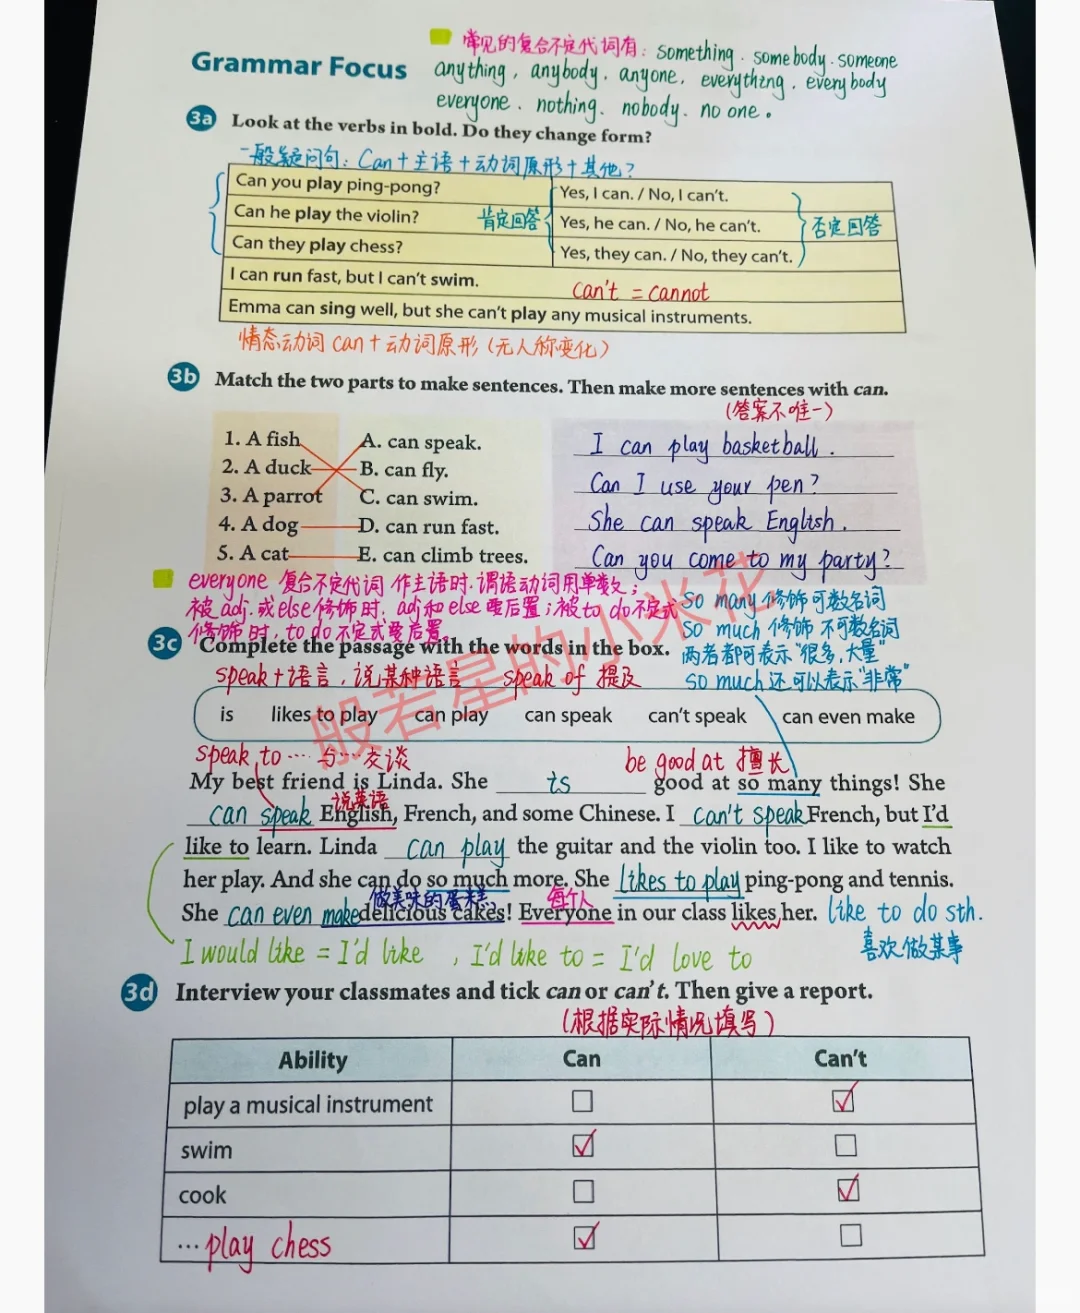 常见的复合不定代词有: something. somebody. someone
Grammar Focus
anything, anybody. anyone, everything. everybody
everyone. nothing. nobody. no one.
3a Look at the verbs in bold. Do they change form?
一般疑问句: Can+主语+动词原形+其他?
Can you play ping-pong? Yes, I can. / No, I can't.
Can he play the violin? 肯定回答 Yes, he can. / No, he can't. 否定回答
Can they play chess? Yes, they can. / No, they can't.
I can run fast, but I can't swim. can't = cannot
Emma can sing well, but she can't play any musical instruments.
情态动词 can+动词原形(无人称变化)
3b Match the two parts to make sentences. Then make more sentences with can.
(答案不唯一)
1. A fish A. can speak. I can play basketball.
2. A duck B. can fly. Can I use your pen?
3. A parrot C. can swim. She can speak English.
4. A dog D. can run fast. Can you come to my party?
5. A cat E. can climb trees.
everyone 复合不定代词 作主语时.谓语动词用单数;
被 adj. 或else修饰时. adj和else要后置;被to do不定式 so many修饰可数名词
修饰时, to do不定式要后置. so much 修饰 不可数名词
3c Complete the passage with the words in the box. 两者都可表示"很多,大量"
speak+语言,说某种语言 speak of 提及 so much还可以表示"非常"
is likes to play can play can speak can't speak can even make
speak to … 与…交谈 be good at 擅长
My best friend is Linda. She is good at so many things! She
说英语
can speak English, French, and some Chinese. I can't speak French, but I'd
like to learn. Linda can play the guitar and the violin too. I like to watch
her play. And she can do so much more. She likes to play ping-pong and tennis.
做美味的蛋糕 每个人
She can even make delicious cakes! Everyone in our class likes her. like to do sth.
喜欢做某事
I would like = I'd like , I'd like to = I'd love to
3d Interview your classmates and tick can or can't. Then give a report.
(根据实际情况填写)
Ability Can Can't
play a musical instrument ☐ ☑
swim ☑ ☐
cook ☐ ☑
… play chess ☑ ☐
般若星的小米花